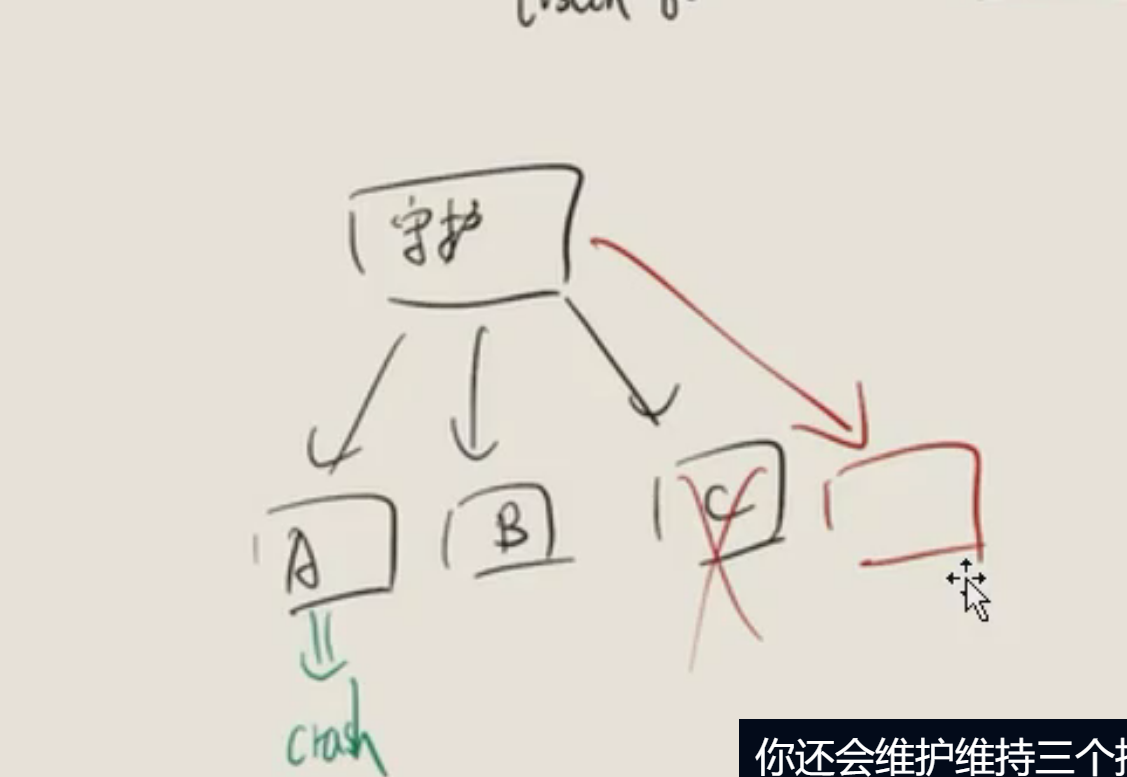 守护
A
B
C
crash
你还会维护维持三个